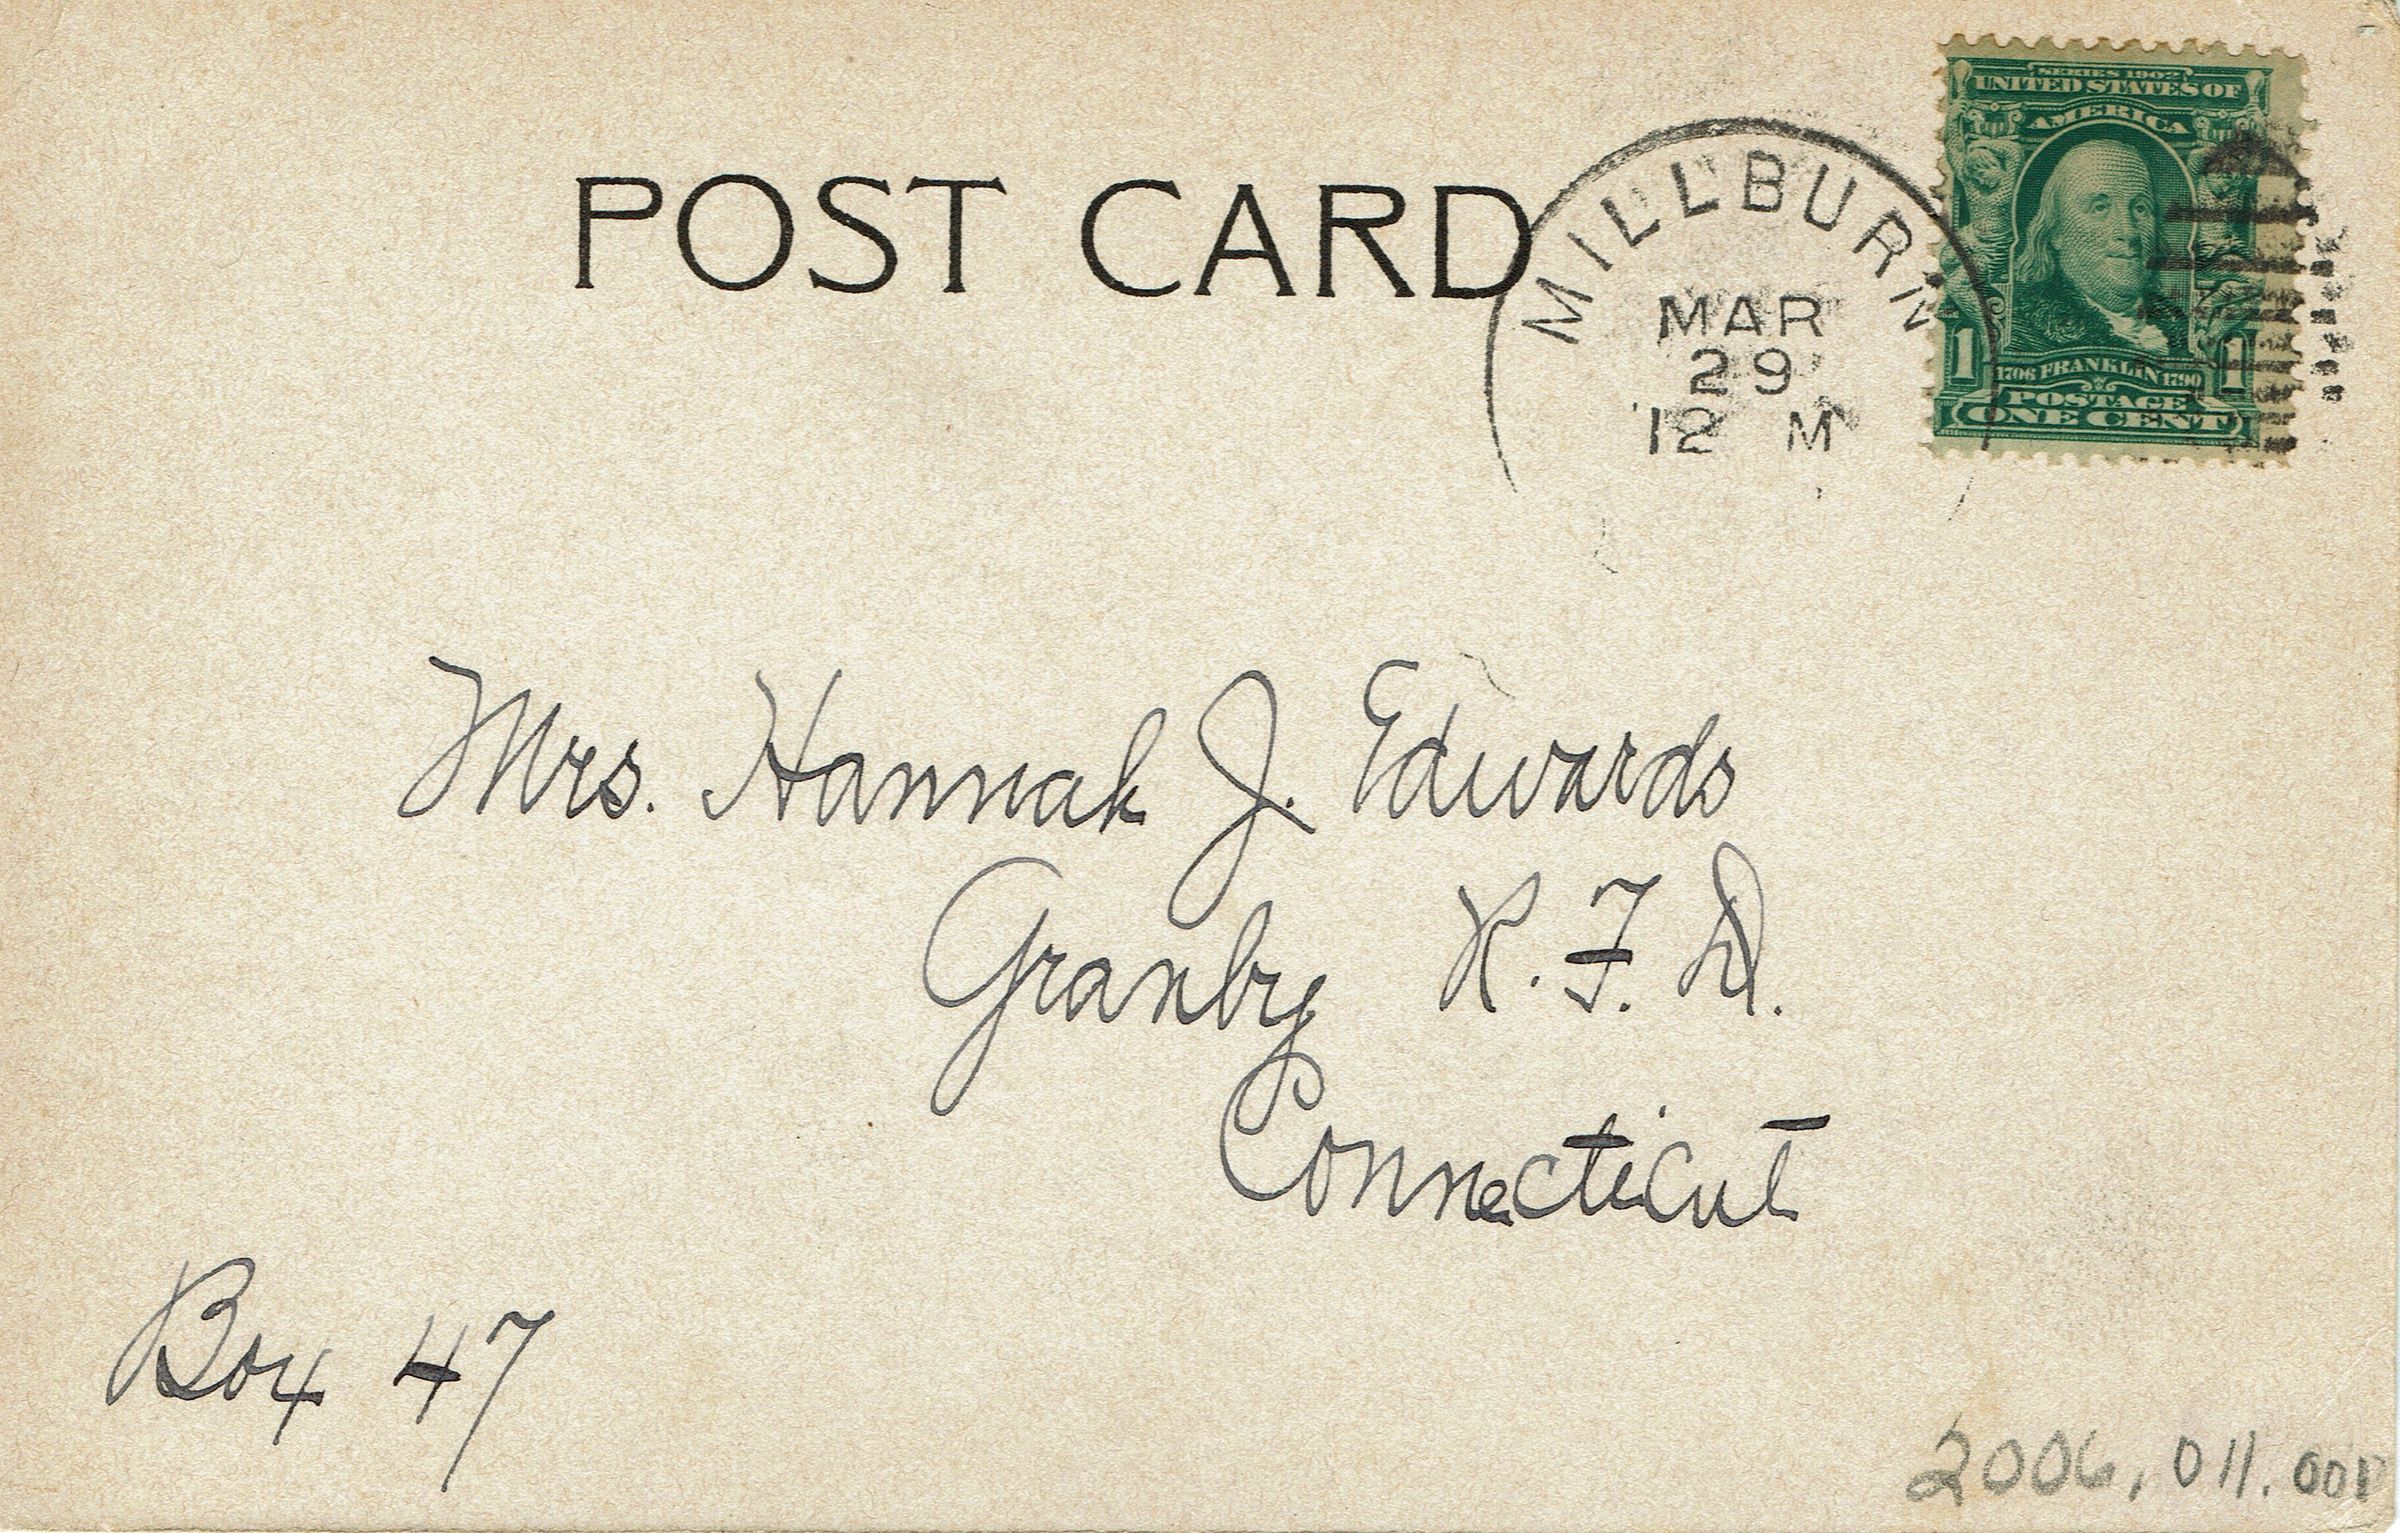 POST CARD
MILLBURN
MAR
29
12 M
SERIES 1902
UNITED STATES OF
AMERICA
1 1706 FRANKLIN 1790 1
POSTAGE
ONE CENT
Mrs. Hannah J. Edwards
Granby R. F. D.
Connecticut
Box 47
2006.011.001